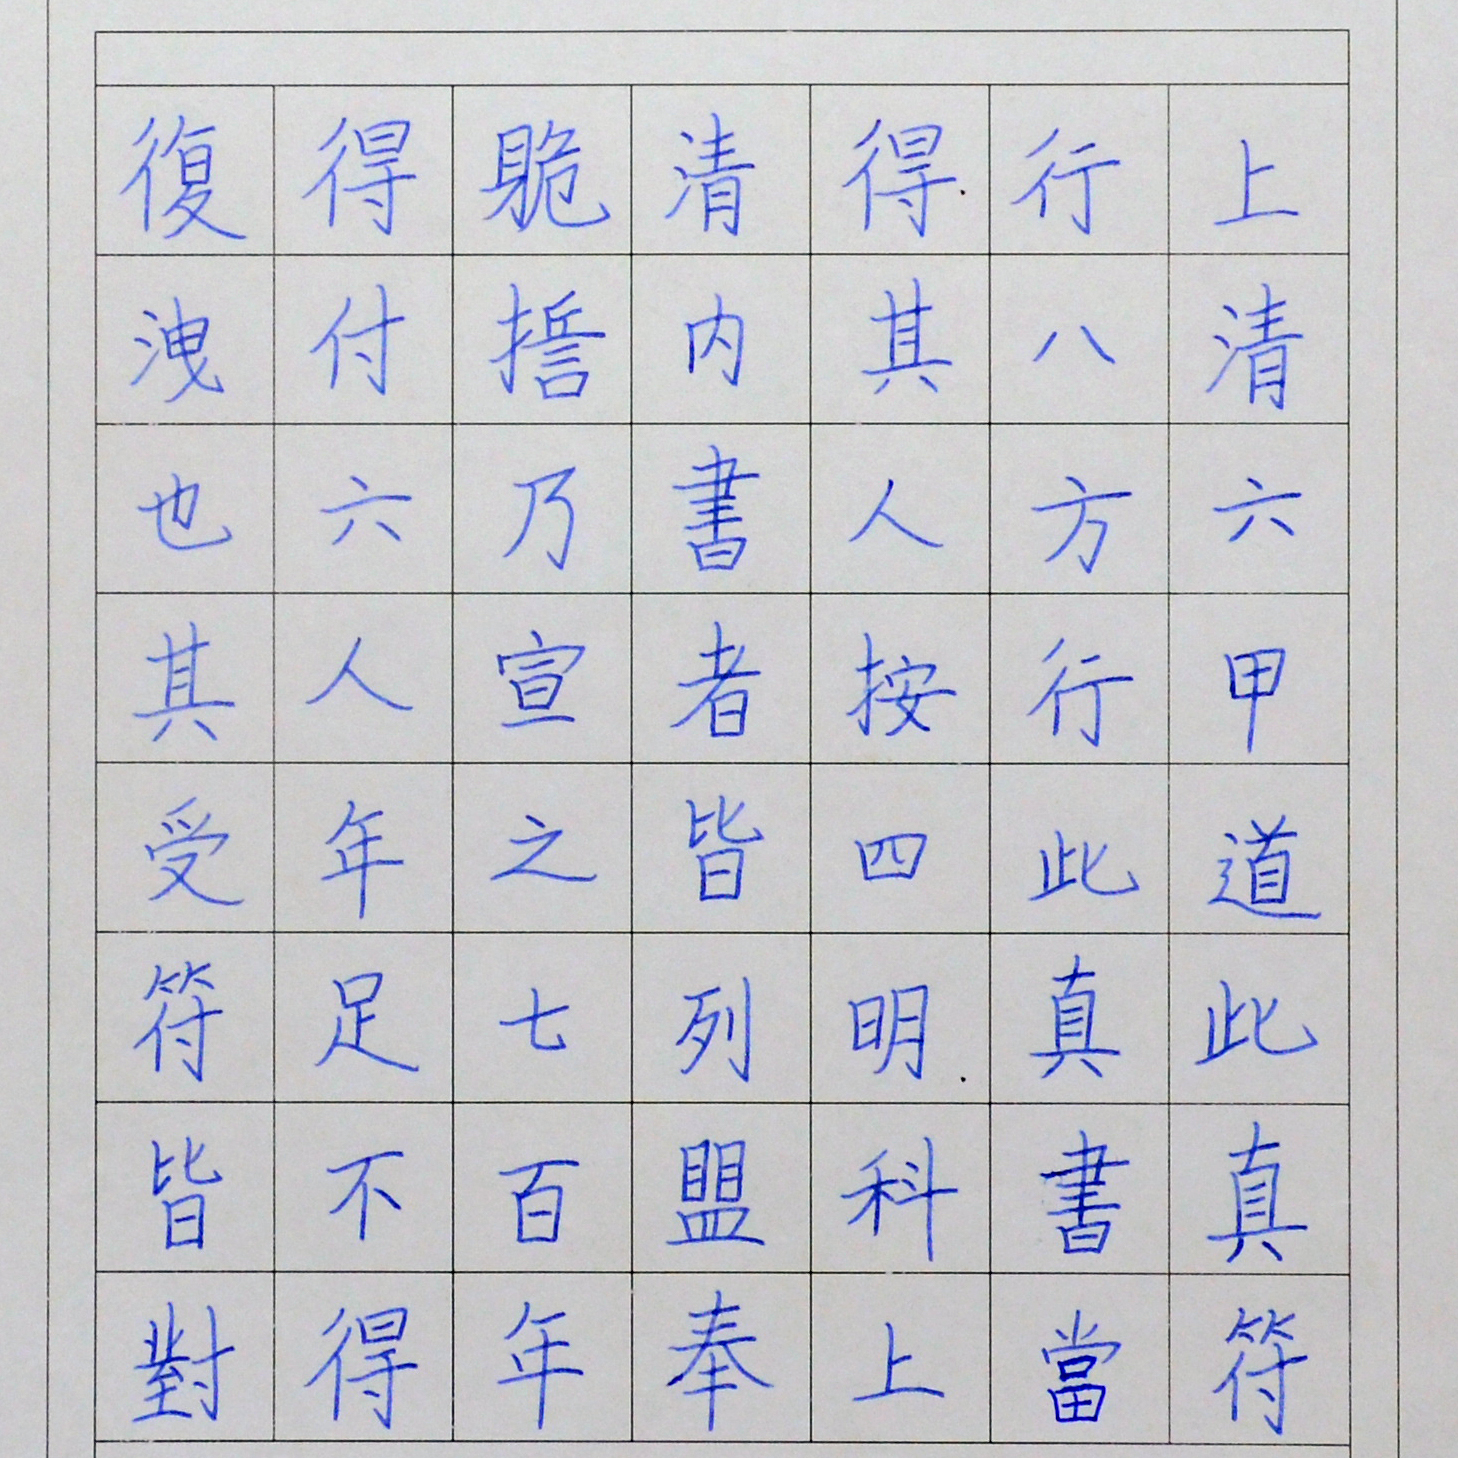 上清六甲道此真符
行八方行此真書當
得其人按四明科上
清内書者皆列盟奉
誓乃宣之七百年
得付六人年足不得
復洩也其受符皆對